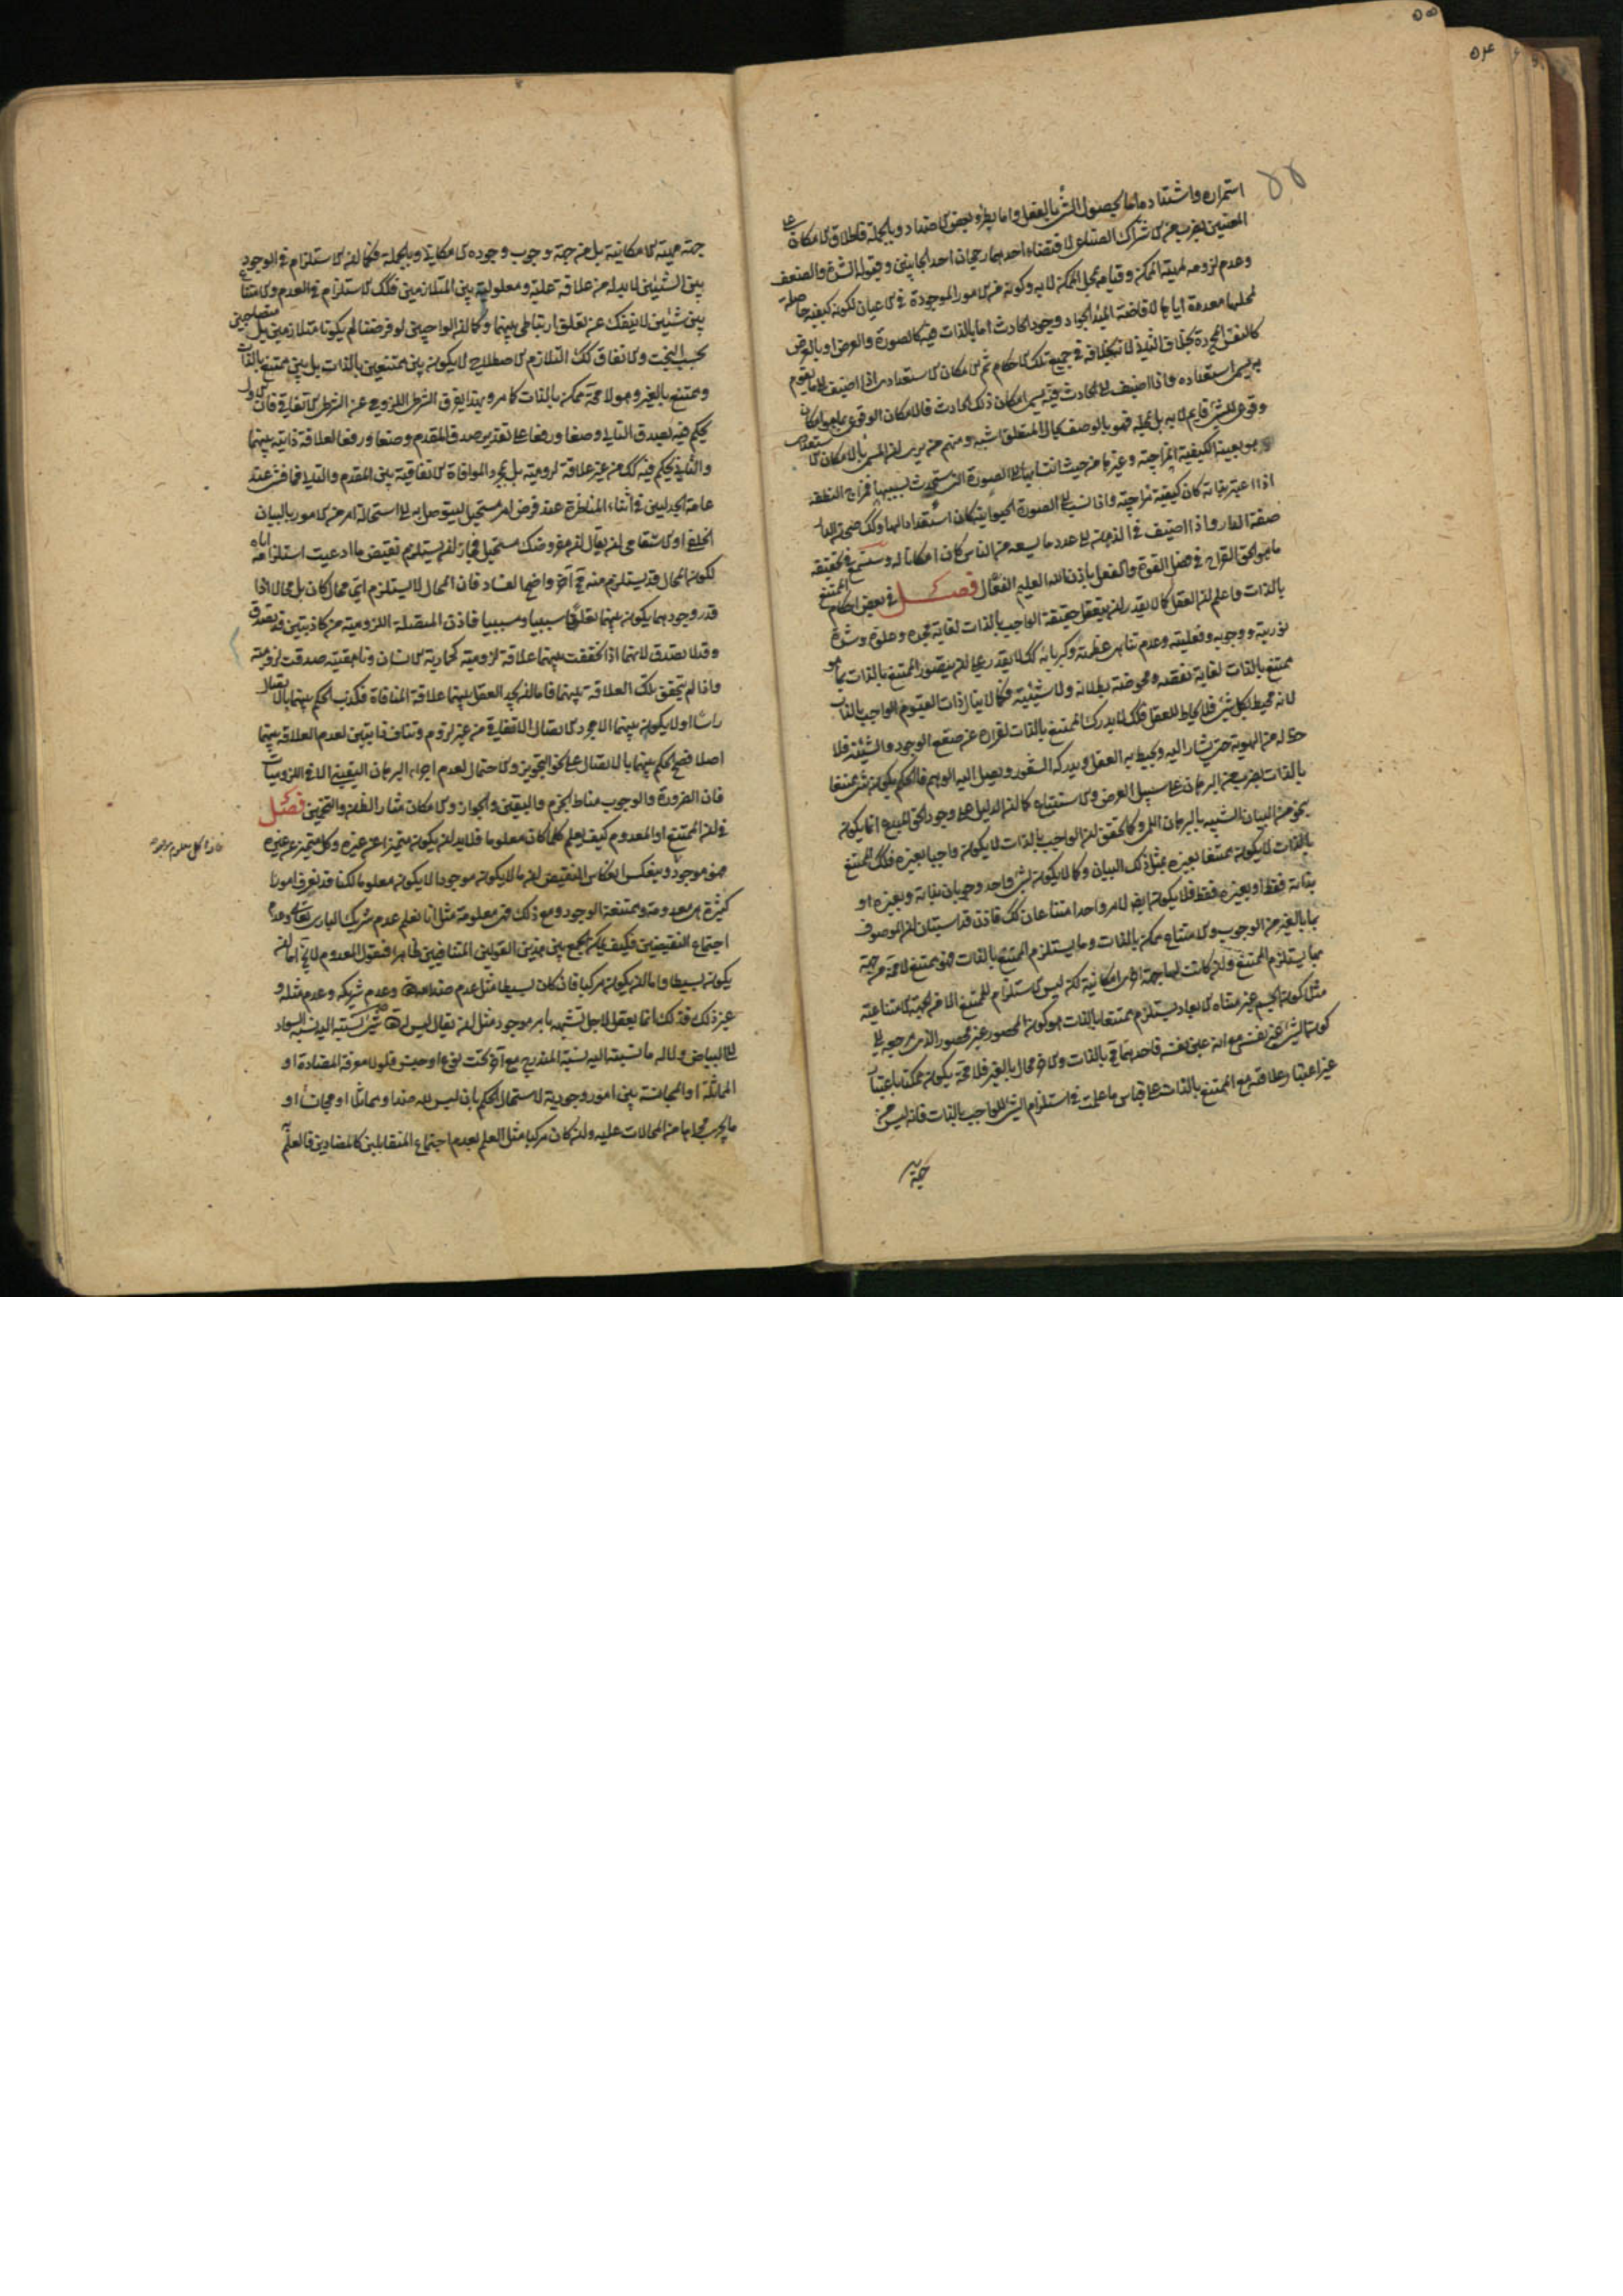 استمراره واشتداده اما بحصول الشئ بالفعل واما بطرو بعض الاضداد وبالجملة فاطلاق الامكان على
المعنيين بضرب من الاشتراك الصناعى لاقتضاء احدهما رجحان احد الجانبين وقبوله الشدة والضعف
وعدم لزومه لمهية الممكن وقيامه بمحل الممكن لا به وكونه من الامور الموجودة فى الاعيان لكونه كيفية حاصلة
لمحلها معدة اياها لافاضة المبدء الجواد وجود الحادث اما بالذات فيه كالصورة والعرض او بالعرض
كالنفس المجردة بخلاف الثانى لانه بخلافه فى جميع تلك الاحكام ثم الامكان الاستعدادى اذا اضيف الى ما يقوم
به يسمى استعداده واذا اضيف الى الحادث فيه يسمى امكان ذلك الحادث فالامكان الوقوعى بما هو امكان
وقوعى للشئ قائم لا به بل بمحله فهو بالوصف بحال المتعلق اشبه ومنهم من يرى ان المسمى بالامكان الاستعدادى
هو بعينه الكيفية المزاجية وغيرها من حيث انتسابها الى الصورة التى ستحدث بسببها فمزاج النطفة
اذا اعتبر بذاته كان كيفية مزاجية واذا نسب الى الصورة الحيوانية كان استعدادا لها وكذلك صحن الدار
صفة الدار واذا اضيف فى الذهن الى عدد ما يسعه من الناس كان امكانا له وستسمع فى تحقيقه
ما هو الحق القراح فى فصل القوة والفعل باذن الله العليم الفعال فصل فى بعض احكام الممتنع
بالذات واعلم ان العقل كما لا يقدر ان يتعقل حقيقة الواجب بالذات لغاية مجده وعلوه وشدة
نوريته ووجوبه وفعليته وعدم تناهى عظمته وكبريائه كك لا يقدر على ان يتصور الممتنع بالذات بما هو
ممتنع بالذات لغاية نقصه ومحوضة بطلانه ولاشيئيته فكما لا ينال ذات القيوم الواجب بالذات
لانه محيط بكل شئ فلا يحاط للعقل فكك لا يدرك الممتنع بالذات لفراره عن صقع الوجود والشيئية فلا
حظ له من الهوية حتى يشار اليه ويحيط به العقل ويدركه الشعور ويصل اليه الوهم فالحكم بكون شئ ممتنعا
بالذات بضرب من البرهان على سبيل العرض والاستتباع كما ان الدليل على وجود الحق المبدع انما يكون
بنحو من البيان الشبيه بالبرهان اللمى وكما تحقق ان الواجب بالذات لا يكون واجبا بغيره فكك الممتنع
بالذات لا يكون ممتنعا بغيره بمثل ذلك البيان وكما لا يكون لشئ واحد وجوبان بذاته وبغيره او
بذاته فقط او بغيره فقط فلا يكون ايضا لامر واحد امتناعان كك فاذن قد استبان ان الموصوف
بما بالغير من الوجوب والامتناع ممكن بالذات وما يستلزم الممتنع بالذات فهو ممتنع لا محة من جهة
بها يستلزم الممتنع وان كانت لها جهة اخرى امكانية لكن ليس الاستلزام للممتنع الا من الجهة الامتناعية
مثل كون الجسم غير متناه الابعاد يستلزم ممتنعا بالذات هو كون المحصور غير محصور الذى مرجعه الى
كون الشئ غير نفسه مع انه عين نفسه فاحدهما مح بالذات والاخر محال بالغير فلا محة يكون ممكنا باعتبار
غير اعتبار علاقته مع الممتنع بالذات على قياس ما علمت فى استلزام الشئ للواجب بالذات فانه ليس من
جهة
جهة مهيته الامكانية بل من جهة وجوب وجوده الامكانى وبالجملة فكما ان الاستلزام فى الوجود
بين الشيئين لا بد له من علاقة علية ومعلولية بين المتلازمين فكك الاستلزام فى العدم والامتناع
بين شيئين لا ينفك عن تعلق ارتباطى بينهما وكما ان الواجبين لو فرضنا لم يكونا متلازمين بل متصاحبين
بحسب البخت والاتفاق كك التلازم الاصطلاحى لا يكون بين ممتنعين بالذات بل بين ممتنع بالذات
وممتنع بالغير وهو لا محة ممكن بالذات كما مر وبهذا يفرق الشرطى اللزومى عن الشرطى الاتفاقى فان الاول
يحكم فيه بصدق التالى وضعا ورفعا على تقدير صدق المقدم وضعا ورفعا لعلاقة ذاتية بينهما
والثانى يحكم فيه كك من غير علاقة لزومية بل بمجرد الموافاة الاتفاقية بين المقدم والتالى فما فشى عند
عامة الجدليين فى اثناء المناظرة عند فرض امر مستحيل ليتوصل به الى استحالة امر من الامور بالبيان
الخلفى او الاستقامى ان يقال ان مفروضك مستحيل فجاز ان يستلزم نقيض ما ادعيت استلزامه اياه
لكون المحال قد يستلزم منه مح آخر واضح الفساد فان المحال لا يستلزم اى محال كان بل محالا اذا
قدر وجودهما يكون بينهما تعلق سببيا ومسببيا فاذن المتصلة اللزومية من كاذبتين قد تصدق
وقد لا تصدق لانهما اذا تحققت بينهما علاقة لزومية كحمارية الانسان وناهقيته صدقت لزومية
واذا لم يتحقق تلك العلاقة بينهما فاما ان يجد العقل بينهما علاقة المنافاة فكذب الحكم بينهما بالاتصال
راسا او لا يكون بينهما الا مجرد الاتصال الاتفاقى من غير لزوم وتناف ذاتيين لعدم العلاقة بينهما
اصلا فصح الحكم بينهما بالاتصال على نحو التجويز والاحتمال لعدم اجراء البرهان اليقينى الا فى اللزوميات
فان الضرورة والوجوب مناط الجزم واليقين والجواز والامكان مثار الظن والتخمين فصل
فى ان الممتنع او المعدوم كيف يعلم كلما كان معلوما فلا بد ان يكون متميزا عن غيره وكل متميز عن غيره
فهو موجود وينعكس انعكاس النقيض ان ما لا يكون موجودا لا يكون معلوما لكنا قد نعرف امورا
فاذا كل معلوم موجود
كثيرة هى معدومة وممتنعة الوجود ومع ذلك فهى معلومة مثل انا نعلم عدم شريك البارى تعالى وعدم
اجتماع النقيضين فكيف يمكن الجمع بين هذين القولين المتنافيين ظاهرا فنقول المعدوم لا يخ اما ان
يكون بسيطا واما ان يكون مركبا فان كان بسيطا مثل عدم ضد الله وعدم شريكه وعدم مثله و
غير ذلك فذلك انما يعقل لاجل تشبهه بامر موجود مثل ان يقال ليس لله شئ نسبته اليه نسبة السواد
الى البياض ولا له ما نسبته اليه نسبة المندرج مع آخر تحت نوع او جنس فلولا معرفة المضادة او
المماثلة او المجانسة بين امور وجودية لاستحال الحكم بان ليس لله ضد او مماثل او مجانس او
ما يجرى مجراها من المحالات عليه وان كان مركبا مثل العلم بعدم اجتماع المتقابلين كالمتضادين فالعلم